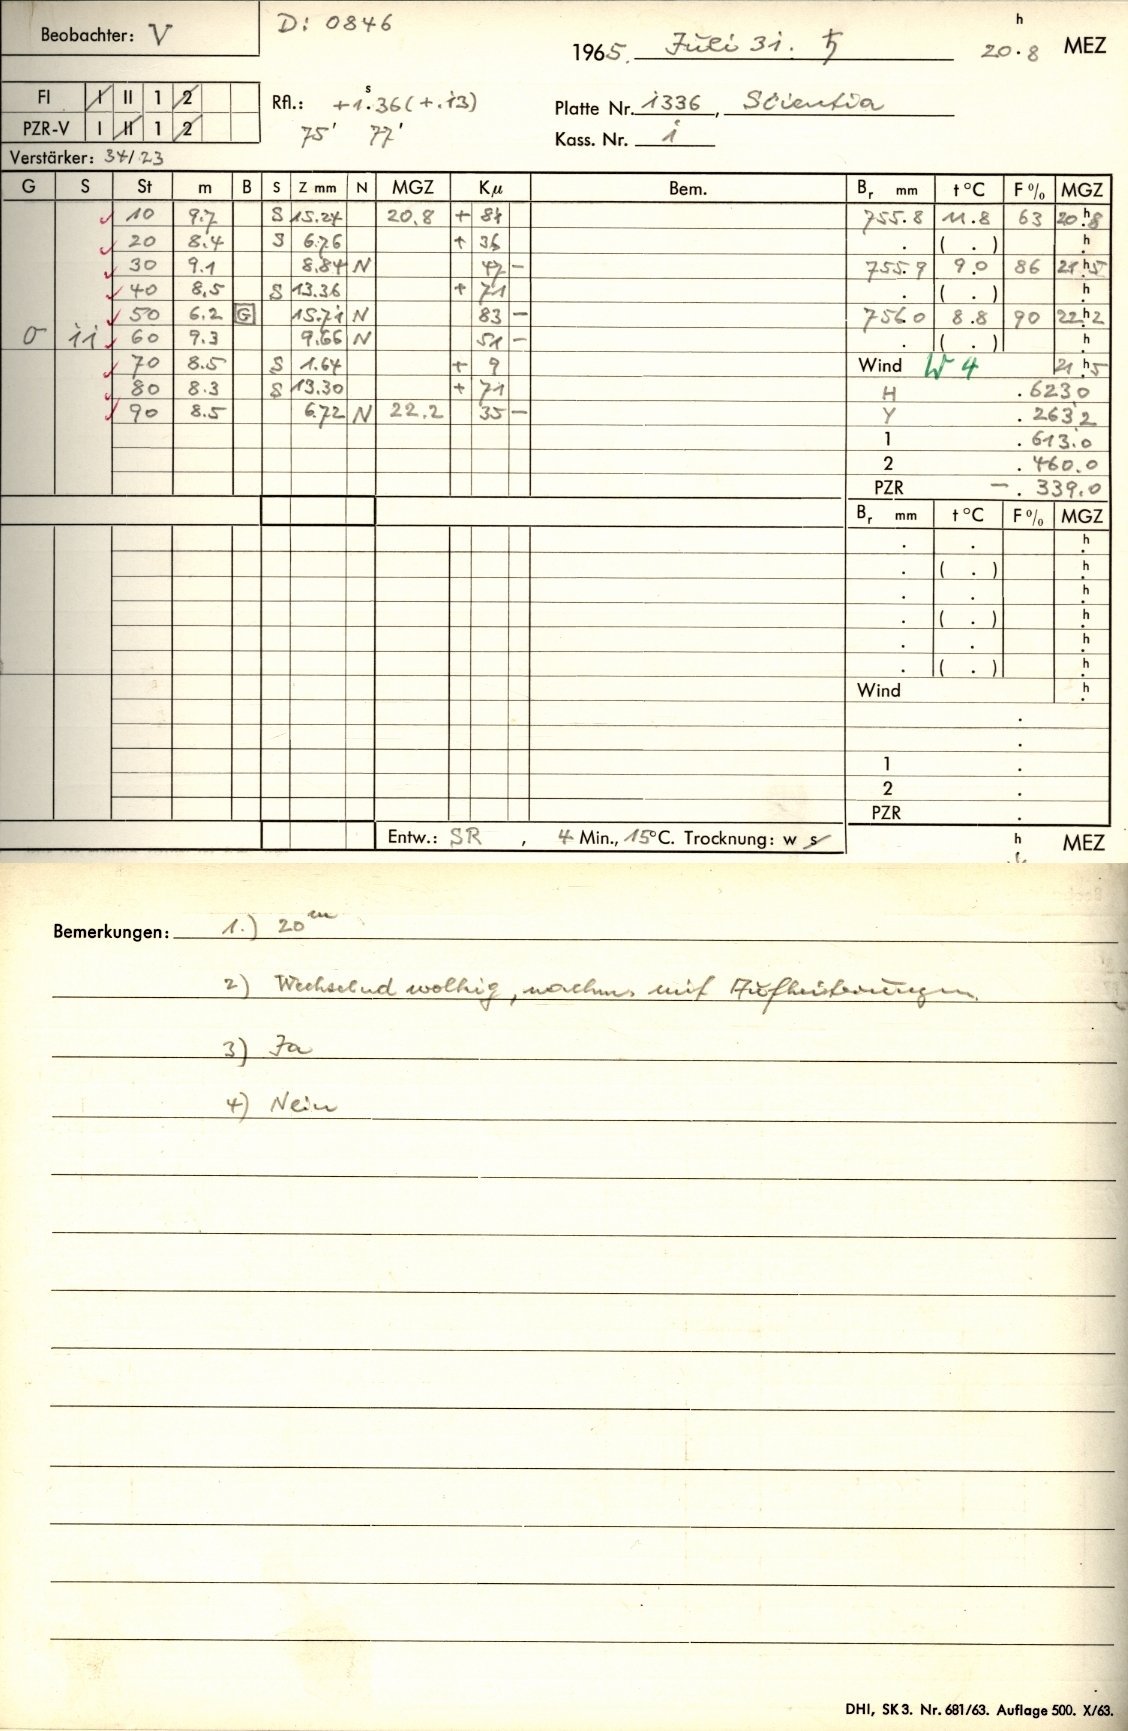 Beobachter: V
D: 0846
1965. Juli 31. ♄ 20.8 h MEZ
Fl I II 1 2
PZR-V I II 1 2
Rfl.: +1.36 s (+.13)
75' 77'
Platte Nr. 1336, Scientia
Kass. Nr. 1
Verstärker: 34/23
G S St m B S Z mm N MGZ Kµ Bem. Br mm t °C F % MGZ
✓ 10 9.7 S 15.24 20.8 + 81 755.8 11.8 63 20.h8
✓ 20 8.4 S 6.76 + 36 . ( . ) h
✓ 30 9.1 8.84 N 47 – 755.9 9.0 86 21.h5
✓ 40 8.5 S 13.36 + 71 . ( . ) h
✓ 50 6.2 G 15.71 N 83 – 756.0 8.8 90 22.h2
σ 11 ✓ 60 9.3 9.66 N 51 – . ( . ) h
✓ 70 8.5 S 1.64 + 9 Wind W 4 21.h5
✓ 80 8.3 S 13.30 + 71 H .6230
✓ 90 8.5 6.72 N 22.2 35 – Y .2632
1 .613.0
2 .460.0
PZR – .339.0
Br mm t °C F % MGZ
. . h
. ( . ) h
. . h
. ( . ) h
. . h
. ( . ) h
Wind h
.
.
1 .
2 .
PZR .
Entw.: SR , 4 Min., 15°C. Trocknung: w s
h MEZ
Bemerkungen: 1.) 20 m
2) Wechselnd wolkig, nachm. mit Aufheiterungen
3) Ja
4) Nein
DHI, SK 3. Nr. 681/63. Auflage 500. X/63.